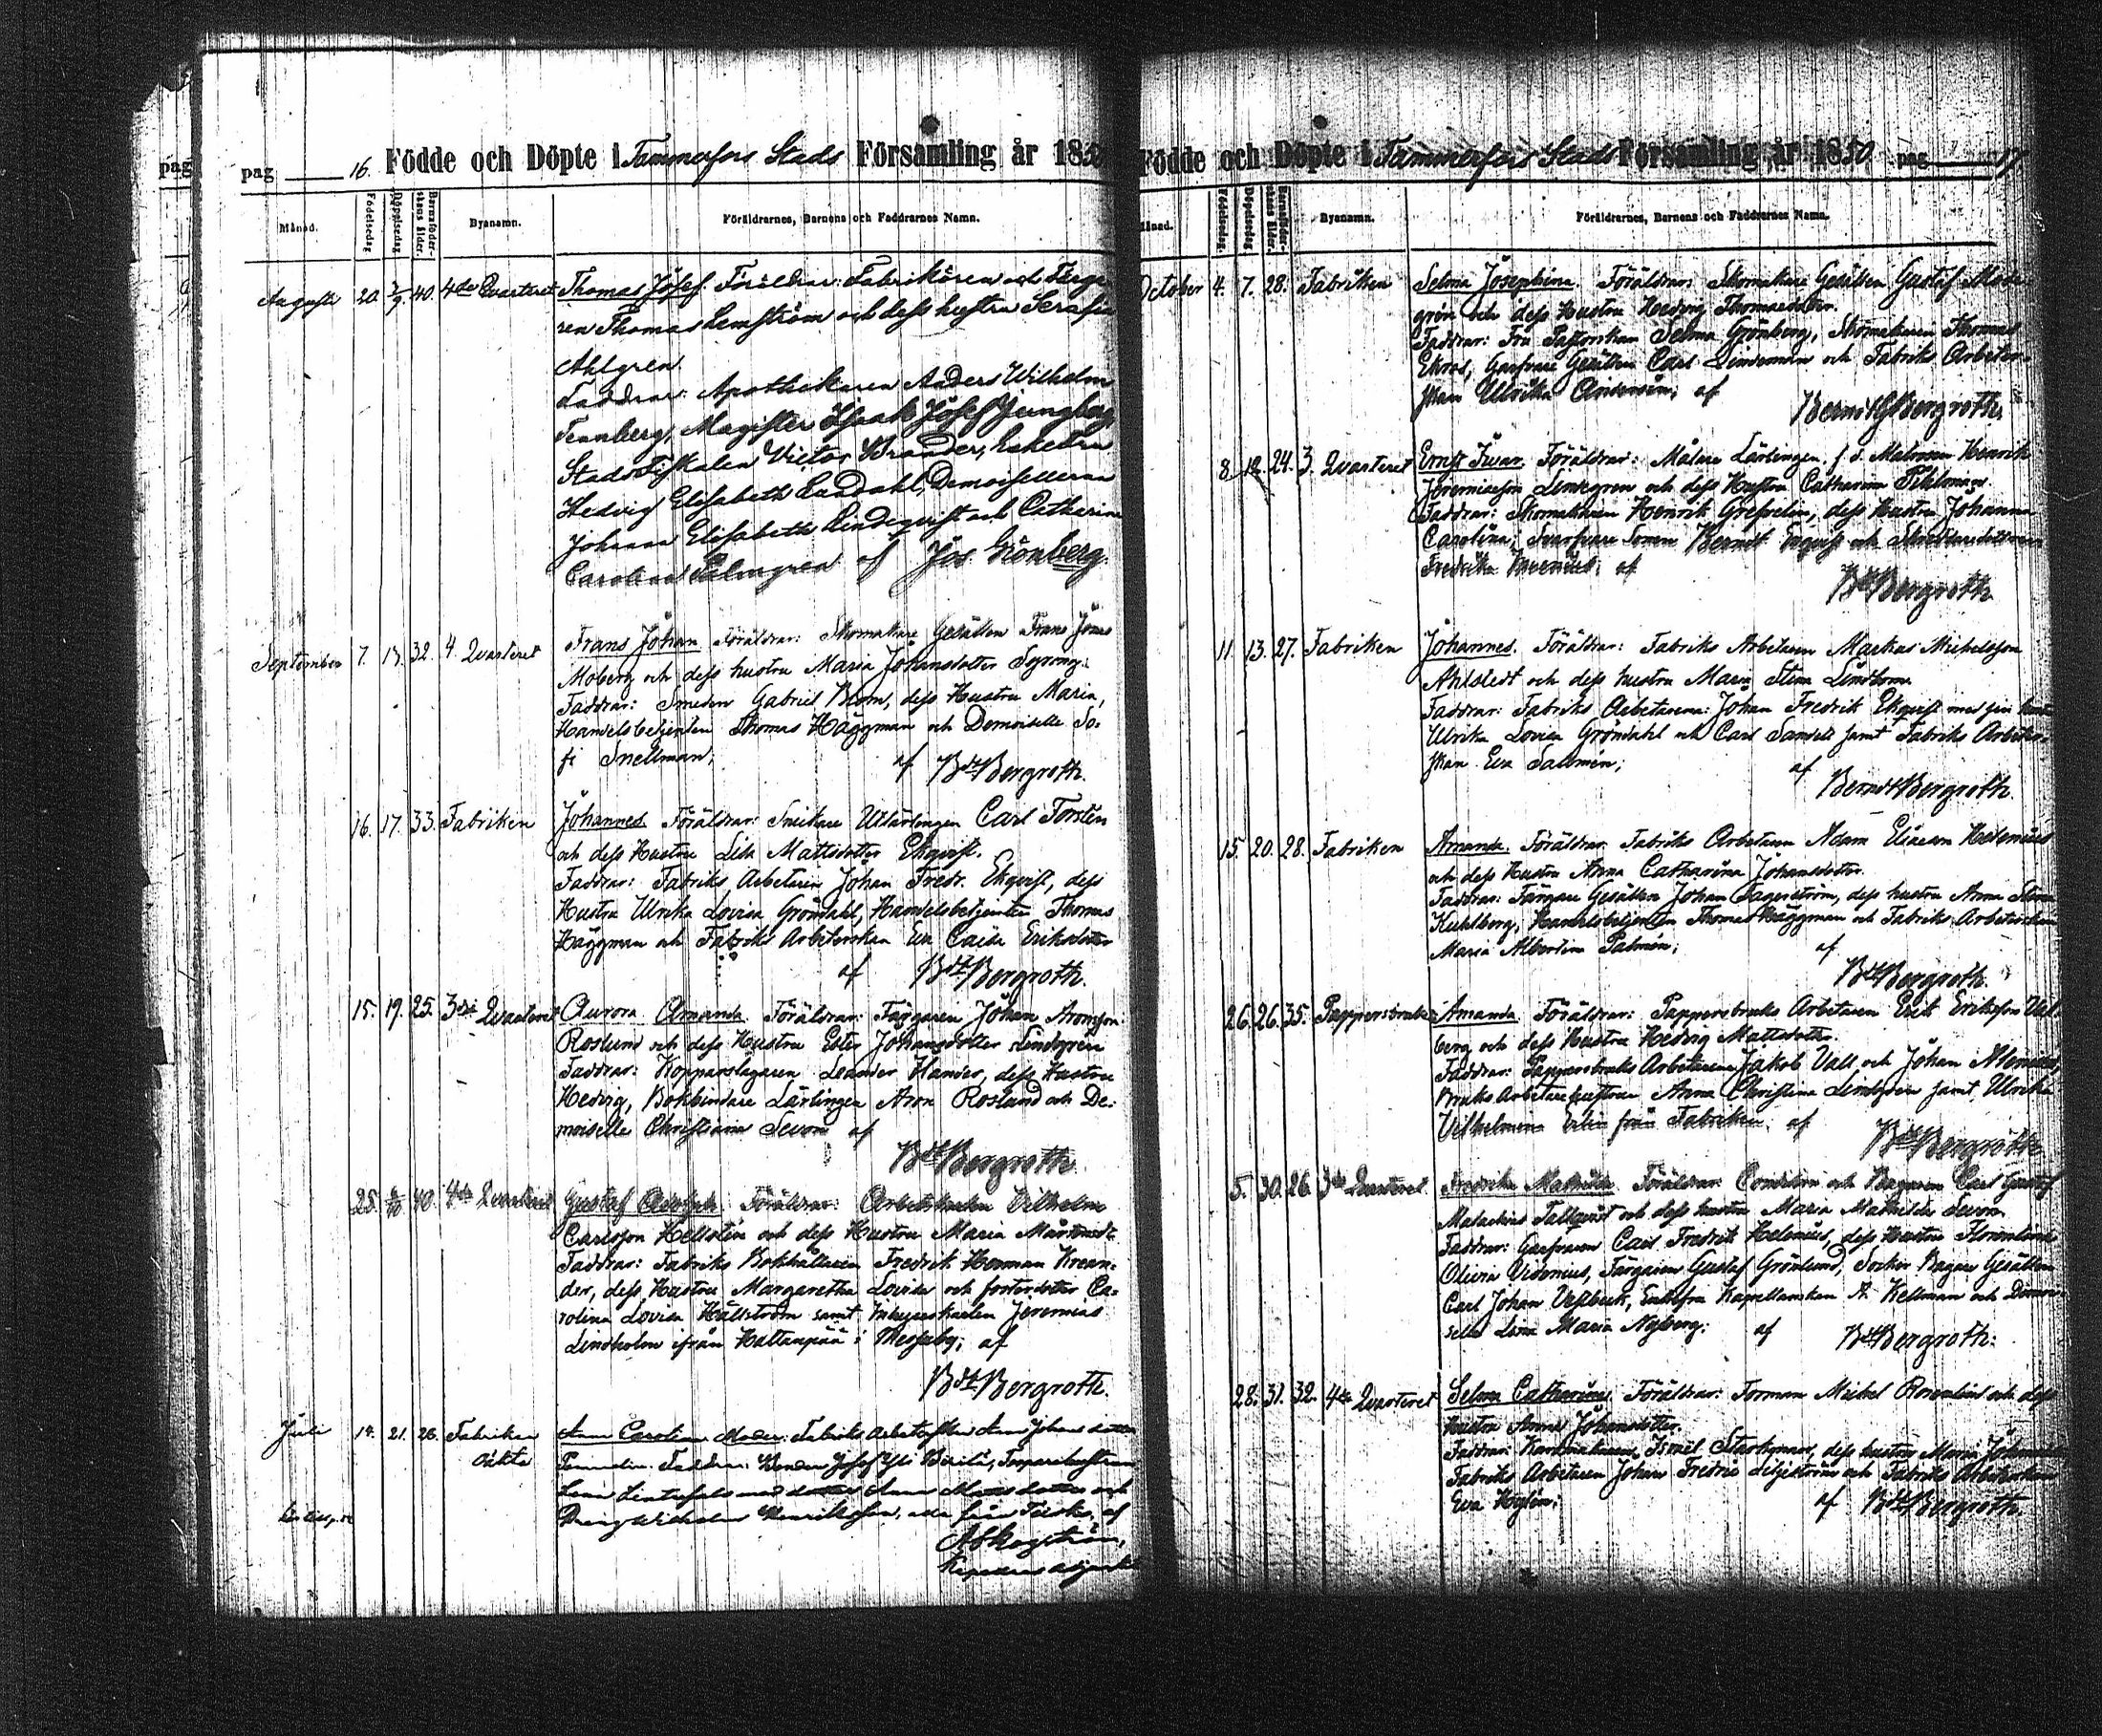 pag
pag 16. Födde och Döpte i Tammerfors Stads Församling år 1850
Månad. Födelsedag Döpelsedag Barnaföderskans ålder. Byanamn. Föräldrarnes, Barnens och Faddrarnes Namn.
Augusti 20. 2/9. 40. 4de Qvarteret Thomas Josef. Föräldrar: Fabrikören och Färga
ren Thomas Lemström och dess hustru Serafia
Ahlgren
Faddrar: Apothekaren Anders Wilhelm
Tennberg, Magister Isaak Josef Ljungberg,
Stads Fiskalen Victor Brander, Enkefru
Hedvig Elisabeth Lundahl, Demoisellerna
Johanna Elisabeth Lindeqvist och Catharina
Carolina Palmgren af Jos. Grönberg.
September 7. 13. 32. 4. Qvarteret Frans Johan Föräldrar: Skomakare Gesällen Frans Jonas
Moberg och dess hustru Maria Johansdotter
Faddrar: Smeden Gabriel Blom, dess Hustru Maria,
Handelsbetjenten Thomas Häggman och Demoiselle So-
fi Snellman; af Bdt Bergroth.
16. 17. 33. Fabriken Johannes. Föräldrar: Snickare Utlärlingen Carl Torstén
och dess Hustru Lisa Mattsdotter Ekqvist.
Faddrar: Fabriks Arbetaren Johan Fredr. Ekqvist, dess
Hustru Ulrika Lovisa Gröndahl, Handelsbetjenten Thomas
Häggman och Fabriks Arbeterskan Eva Caisa Eriksdotter
af Bdt Bergroth.
15. 19. 25. 3dje Qvarteret Aurora Amanda. Föräldrar: Färgaren Johan Aronsson
Roslund och dess Hustru Ester Johansdotter Lindgrén
Faddrar: Kopparslagaren Leander Hander, dess Hustru
Hedvig, Bokbindare Lärlingen Aron Roslund och De-
moiselle Christiana Sevon af
Bdt Bergroth
25. 6/10 40. 4de Qvarteret Gustaf Adolph. Föräldrar: Arbetskarlen Vilhelm
Carlsson Hellstén och dess Hustru Maria Mårtensdr.
Faddrar: Fabriks Bokhållaren Fredrik Herman Krean-
der, dess Hustru Margaretha Lovisa och fosterdotter Ca-
rolina Lovisa Hällström samt Jeremias
Lindholm ifrån Hattanpää i Messuby; af
Bdt Bergroth.
Juli 14. 21. 26. Fabriken Anna Carolina. Moder: Fabriks Arbeterskan Anna Johansdotter
oäkta Faddrar: Bonden Josef
med dotter Anna
Dräng Wilhelm Henriksson, af
A. Skogström,

Födde och Döpte i Tammerfors Stads Församling år 1850. pag 17.
Månad. Födelsedag. Döpelsedag Barnaföderskans ålder. Byanamn. Föräldrarnes, Barnens och Faddrarnes Namn.
October 4. 7. 28. Fabriken Selma Josephina. Föräldrar: Skomakare Gesällen Gustaf Mode
grén och dess Hustru Hedvig Thomasdotter.
Faddrar: Fru Pastorskan Selma Grönberg, Skomakaren Thomas
Ekroos, Garfvare Gesällen Carl Lindeman och Fabriks Arbeter-
skan Ulrika Andersén; af
Bernd Bergroth.
8. 12. 24. 3. Qvarteret Ernst Ivar. Föräldrar: Målare Lärlingen, f. d. Matrosen Henrik
Jeremiasson Lindegren och dess Hustru Catharina
Faddrar: Skomakaren Henrik Grefvelin, dess Hustru Johanna
Carolina, Berndt och
Fredrika af
Bdt Bergroth
11. 13. 27. Fabriken Johannes. Föräldrar: Fabriks Arbetaren Markus Michelsson
Ahlstedt och dess hustru Maria Stina Lindbom
Faddrar: Fabriks Arbetarena: Johan Fredrik Ekqvist med sin hustru
Ulrika Lovisa Gröndahl och Carl Sandell samt Fabriks Arbeter-
skan Eva Salmén; af
Berndt Bergroth.
15. 20. 28. Fabriken Amanda. Föräldrar: Fabriks Arbetaren Adam Eliasson Helenius
och dess Hustru Anna Catharina Johansdotter.
Faddrar: Färgare Gesällen Johan Fagerström, dess hustru Anna Stina
Kuhlberg, Handelsbetjenten Thomas Häggman och Fabriks Arbeterskan
Maria Albertina Palmén; af
Bdt Bergroth.
26. 26. 35. Pappersbruket Amanda. Föräldrar: Pappersbruks Arbetaren Erik Eriksson Vall
berg och dess Hustru Hedvig Mattsdotter.
Faddrar: Pappersbruks Arbetarena Jakob Vall och Johan Alenius,
Bruks Arbetarehustrun Anna Christina Lindgren samt Ulrika
Vilhelmina från Fabriken; af
Bdt Bergroth
5. 30. 26. 3dje Qvarteret Fredrika Mathilda. Föräldrar: Conditorn och Bagaren Carl Gustaf
Malachias Tallqvist och dess hustru Maria Mathilda Sevon.
Faddrar: Garfvaren Carl Fredrik Helenius, dess Hustru Florentina
Olivia Färgaren Gustaf Grönlund, Socker Bagare Gesällen
Carl Johan Vestbeck, Enkefru Kapellanskan A. Kellman och Demoi-
selle Lisa Maria Nyberg: af Bdt Bergroth.
28. 31. 32. 4de Qvarteret Selma Catharina. Föräldrar: Formannen Mickel Rosenlind och dess
Hustru Anna Johansdotter.
Faddrar: Ismael Starkman, dess hustru Maria
Fabriks Arbetaren Johan Fredric Liljeström och Fabriks Arbeterskan
Eva af Bdt Bergroth.